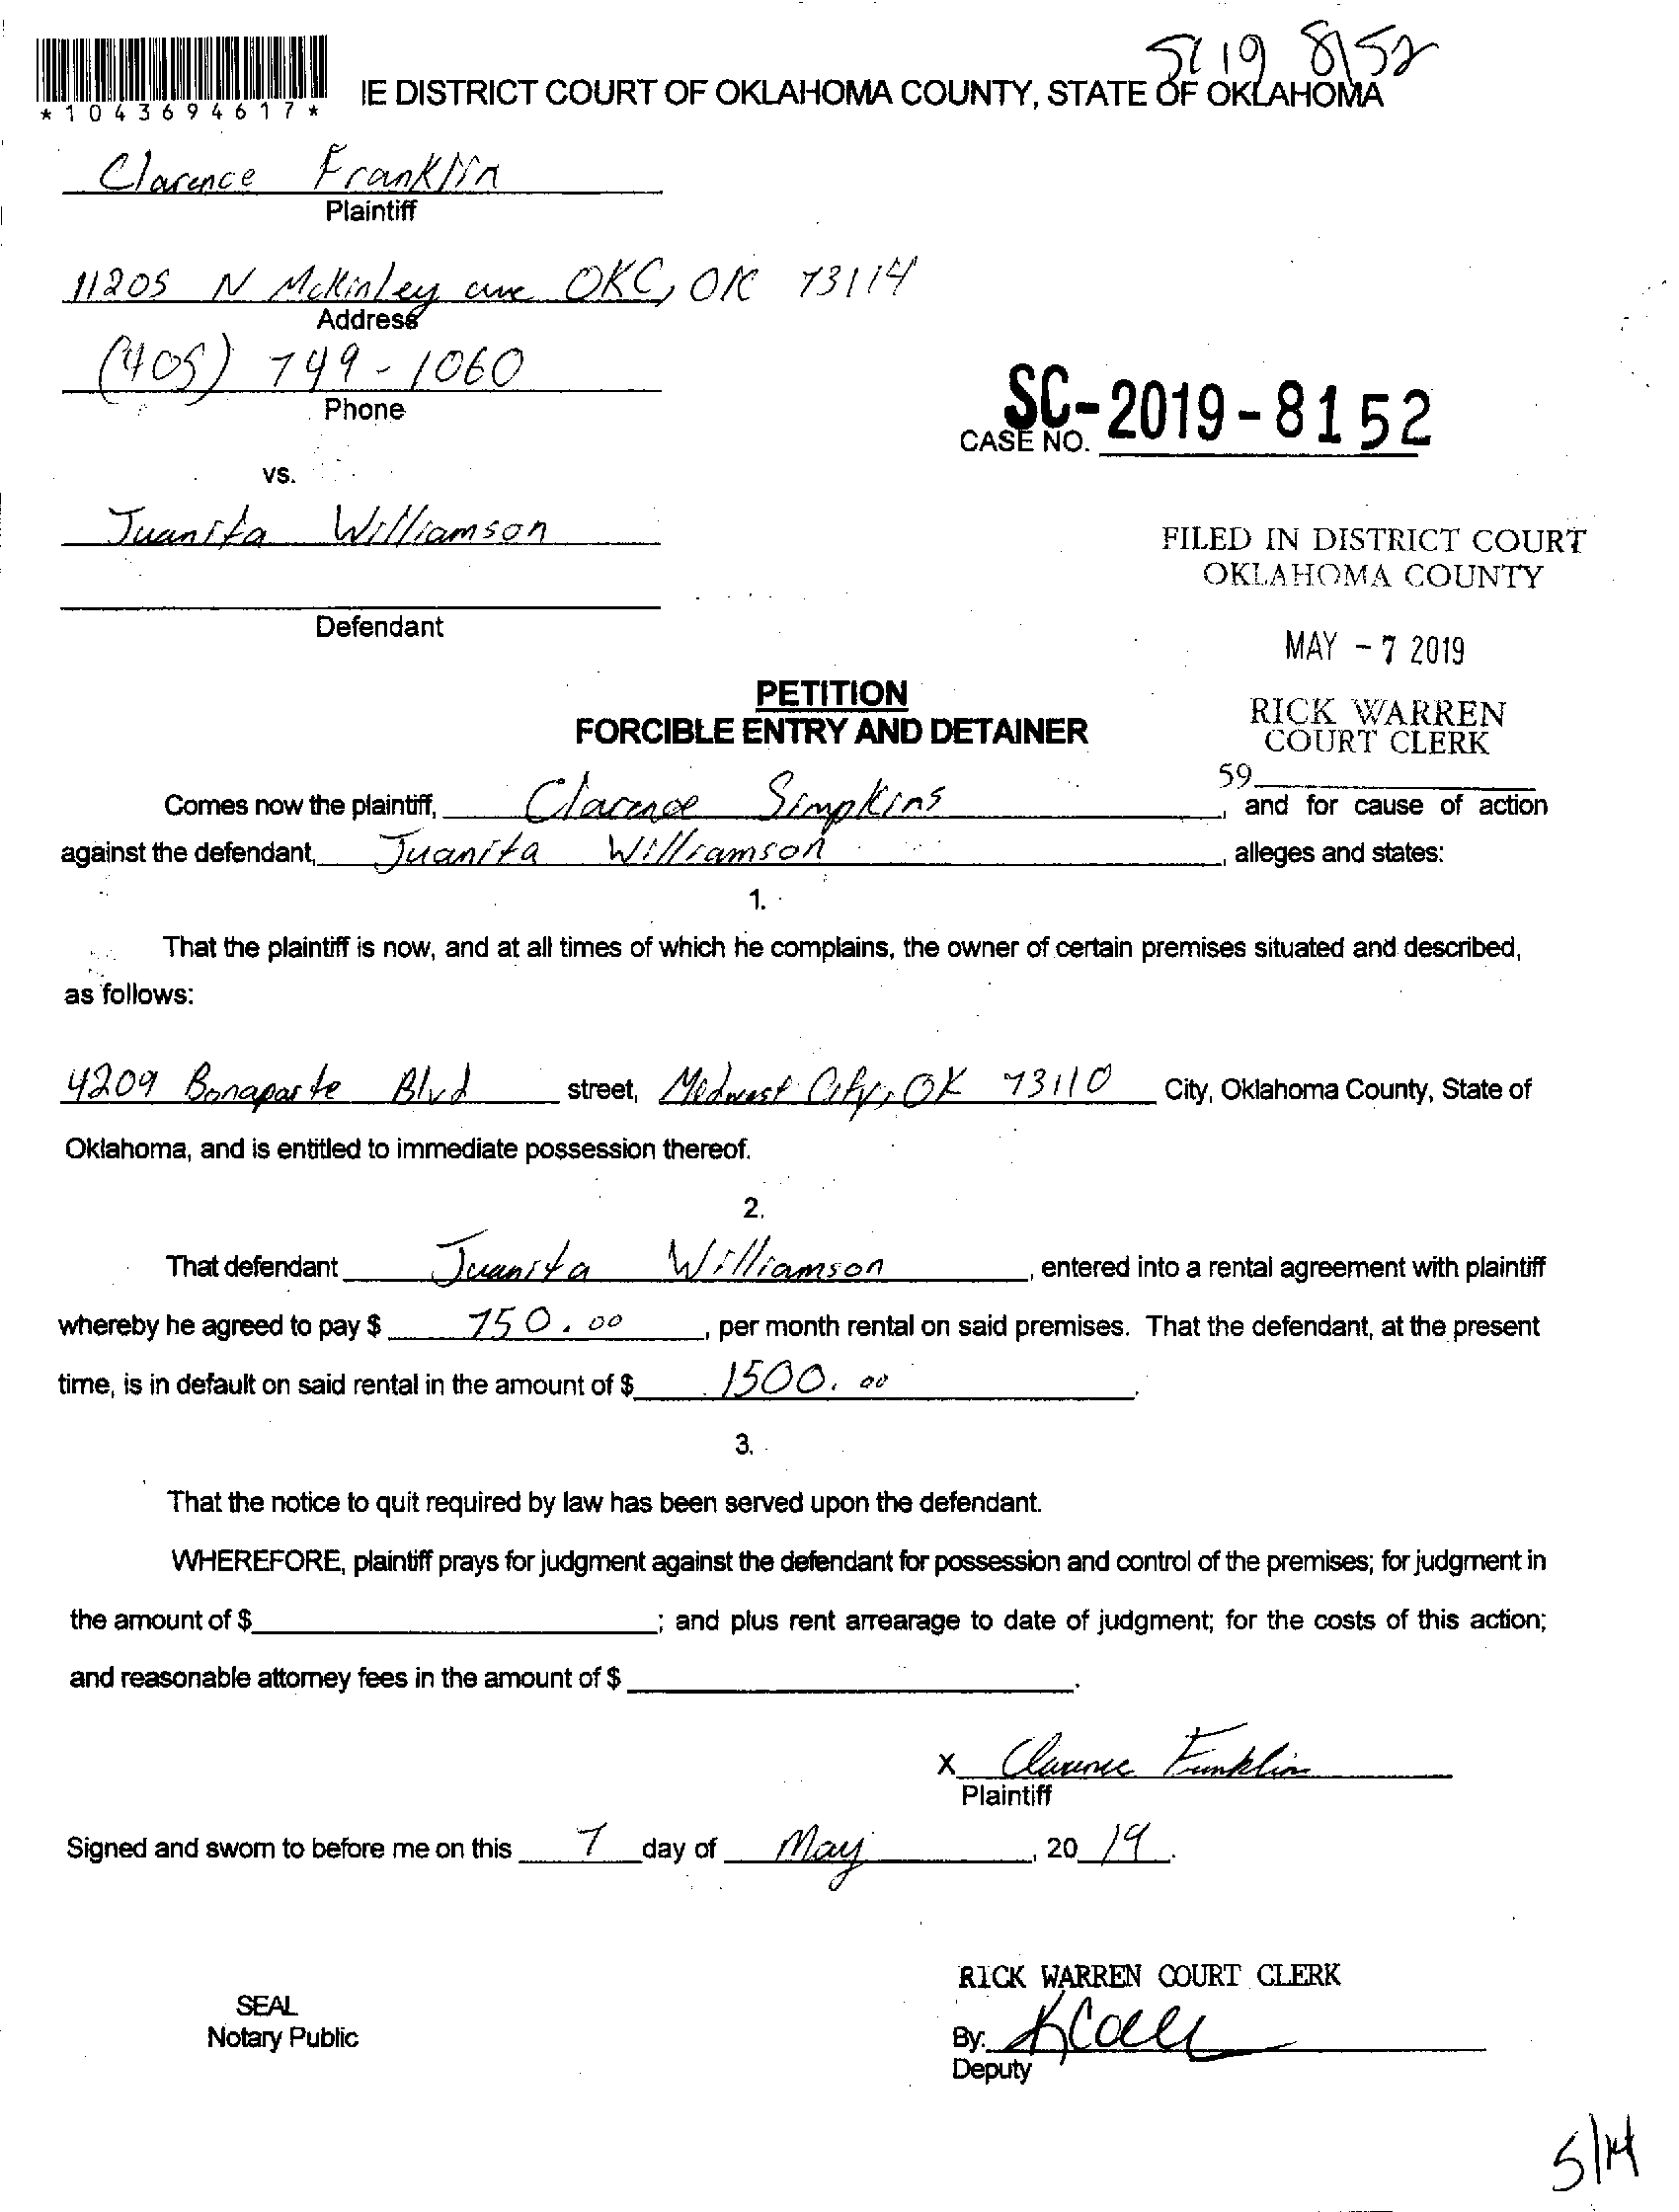 SC 19 8152
*1043694617*
IE DISTRICT COURT OF OKLAHOMA COUNTY, STATE OF OKLAHOMA
Clarence Franklin
Plaintiff
11205 N Mckinley ave OKC, OK 73114
Address
(405) 749-1060
Phone
SC-2019-8152
CASE NO.
vs.
Juanita Williamson
FILED IN DISTRICT COURT
OKLAHOMA COUNTY
Defendant
MAY - 7 2019
PETITION
FORCIBLE ENTRY AND DETAINER
RICK WARREN
COURT CLERK
59
Comes now the plaintiff, Clarence Simpkins, and for cause of action
against the defendant, Juanita Williamson, alleges and states:
1.
That the plaintiff is now, and at all times of which he complains, the owner of certain premises situated and described,
as follows:
4209 Bonaparte Blvd street, Midwest City, OK 73110 City, Oklahoma County, State of
Oklahoma, and is entitled to immediate possession thereof.
2.
That defendant Juanita Williamson, entered into a rental agreement with plaintiff
whereby he agreed to pay $ 750.00, per month rental on said premises. That the defendant, at the present
time, is in default on said rental in the amount of $ 1500.00.
3.
That the notice to quit required by law has been served upon the defendant.
WHEREFORE, plaintiff prays for judgment against the defendant for possession and control of the premises; for judgment in
the amount of $ ; and plus rent arrearage to date of judgment; for the costs of this action;
and reasonable attorney fees in the amount of $ .
X Clarence Franklin
Plaintiff
Signed and sworn to before me on this 7 day of May, 2019.
RICK WARREN COURT CLERK
SEAL
Notary Public
By:
Deputy
5/14